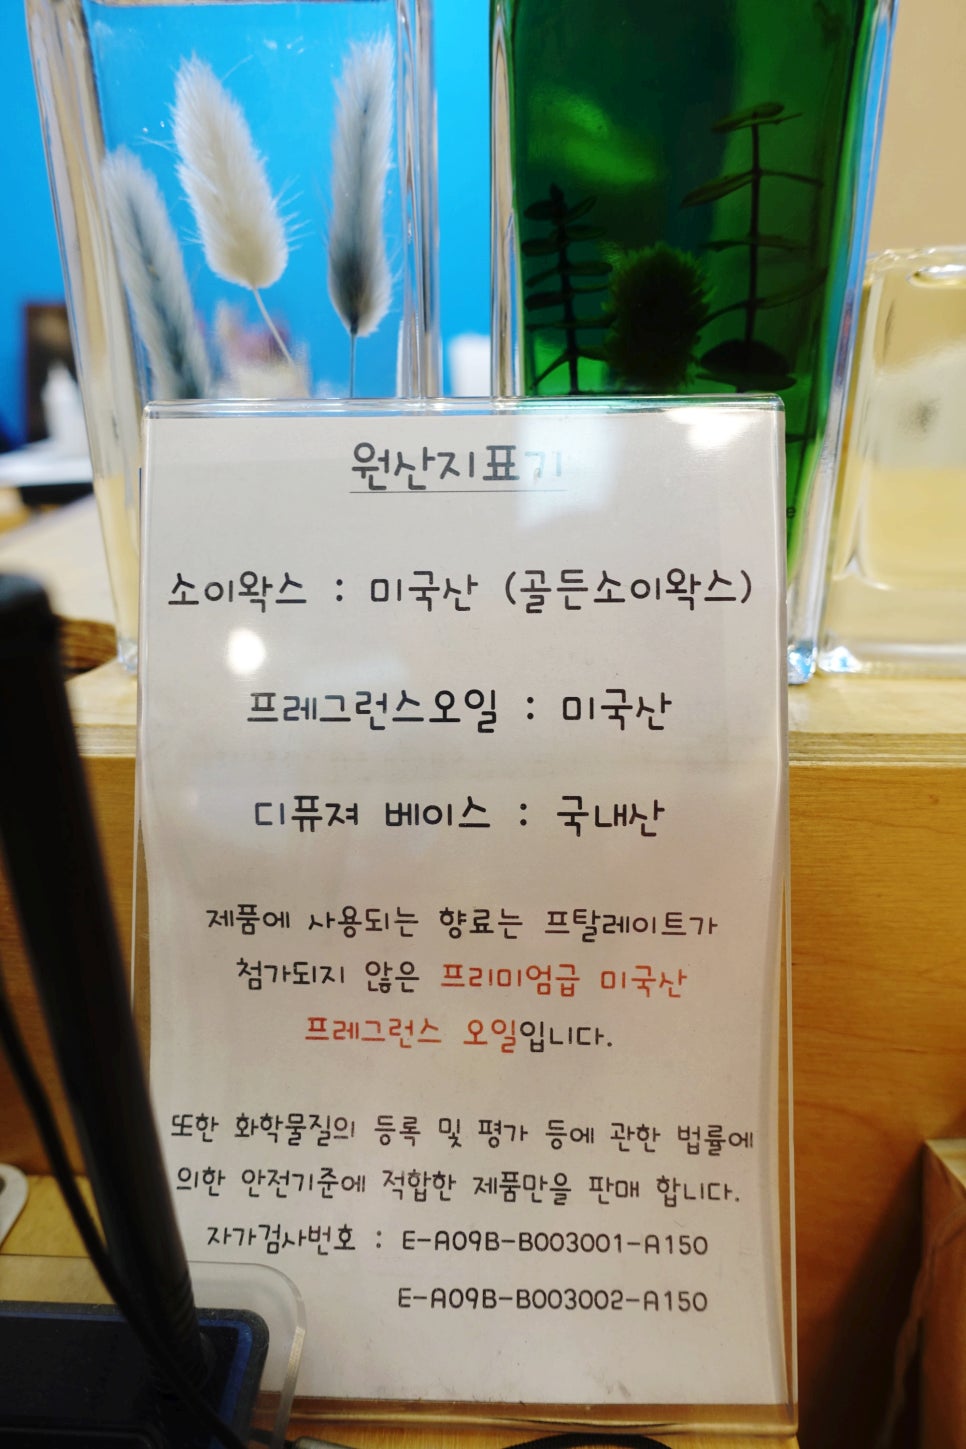 원산지표기
소이왁스 : 미국산 (골든소이왁스)
프레그런스오일 : 미국산
디퓨져 베이스 : 국내산
제품에 사용되는 향료는 프탈레이트가
첨가되지 않은 프리미엄급 미국산
프레그런스 오일입니다.
또한 화학물질의 등록 및 평가 등에 관한 법률에
의한 안전기준에 적합한 제품만을 판매 합니다.
자가검사번호 : E-A09B-B003001-A150
E-A09B-B003002-A150